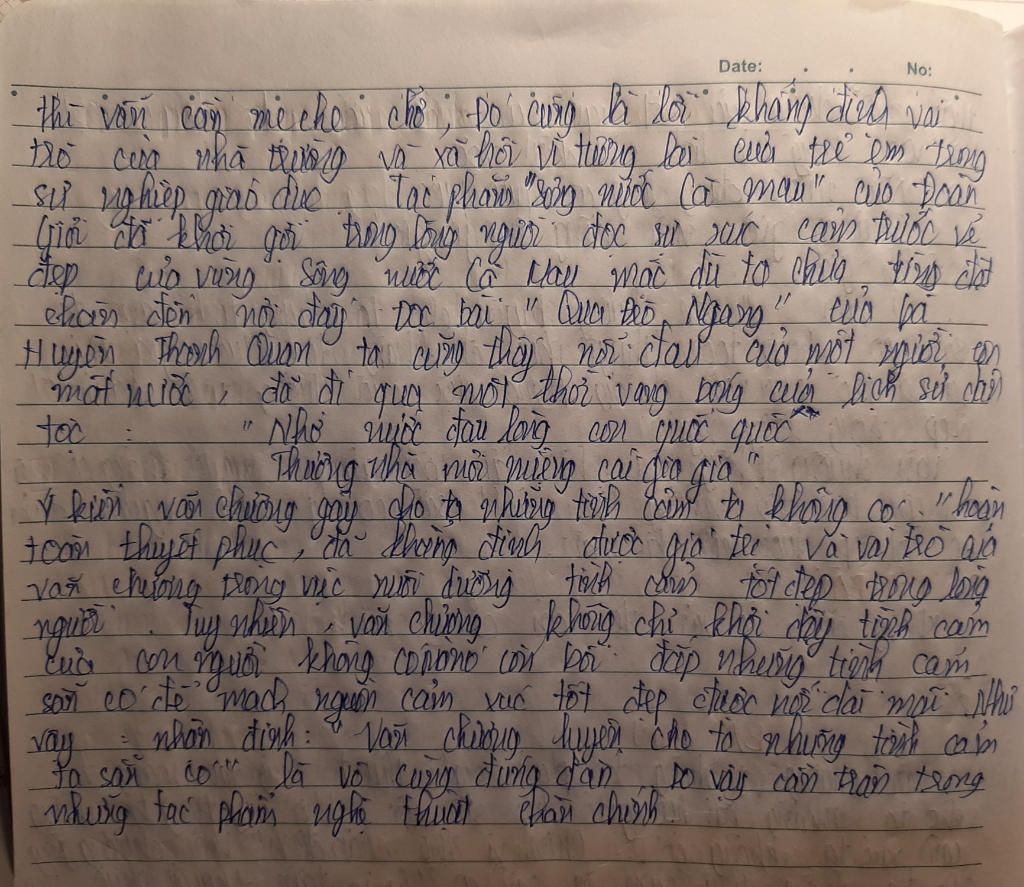 Date: . . No:
thì vẫn cần mẹ che chở, Đó cũng là lời khẳng định vai
trò của nhà trường và xã hội vì tương lai của trẻ em trong
sự nghiệp giáo dục Tác phẩm "sông nước Cà Mau" của Đoàn
Giỏi đã khơi gợi trong lòng người đọc sự xúc cảm trước vẻ
đẹp của vùng sông nước Cà Mau mặc dù ta chưa từng đặt
chân đến nơi đây. Đọc bài "Qua Đèo Ngang" của bà
Huyện Thanh Quan ta cũng thấy nỗi đau của một người con
mất nước, đã đi qua một thời vang bóng của lịch sử dân
tộc : "Nhớ nước đau lòng con quốc quốc
Thương nhà mỏi miệng cái gia gia"
Ý kiến văn chương gây cho ta những tình cảm ta không có "hoàn
toàn thuyết phục, đã khẳng định được giá trị và vai trò của
văn chương trong việc nuôi dưỡng tình cảm tốt đẹp trong lòng
người. Tuy nhiên, văn chương không chỉ khơi dậy tình cảm
của con người không có nó còn bồi đắp những tình cảm
sẵn có để mạch nguồn cảm xúc tốt đẹp được nối dài mãi. Như
vậy : nhận định: "Văn chương luyện cho ta những tình cảm
ta sẵn có" là vô cùng đúng đắn Do vậy cần trân trọng
những tác phẩm nghệ thuật chân chính.